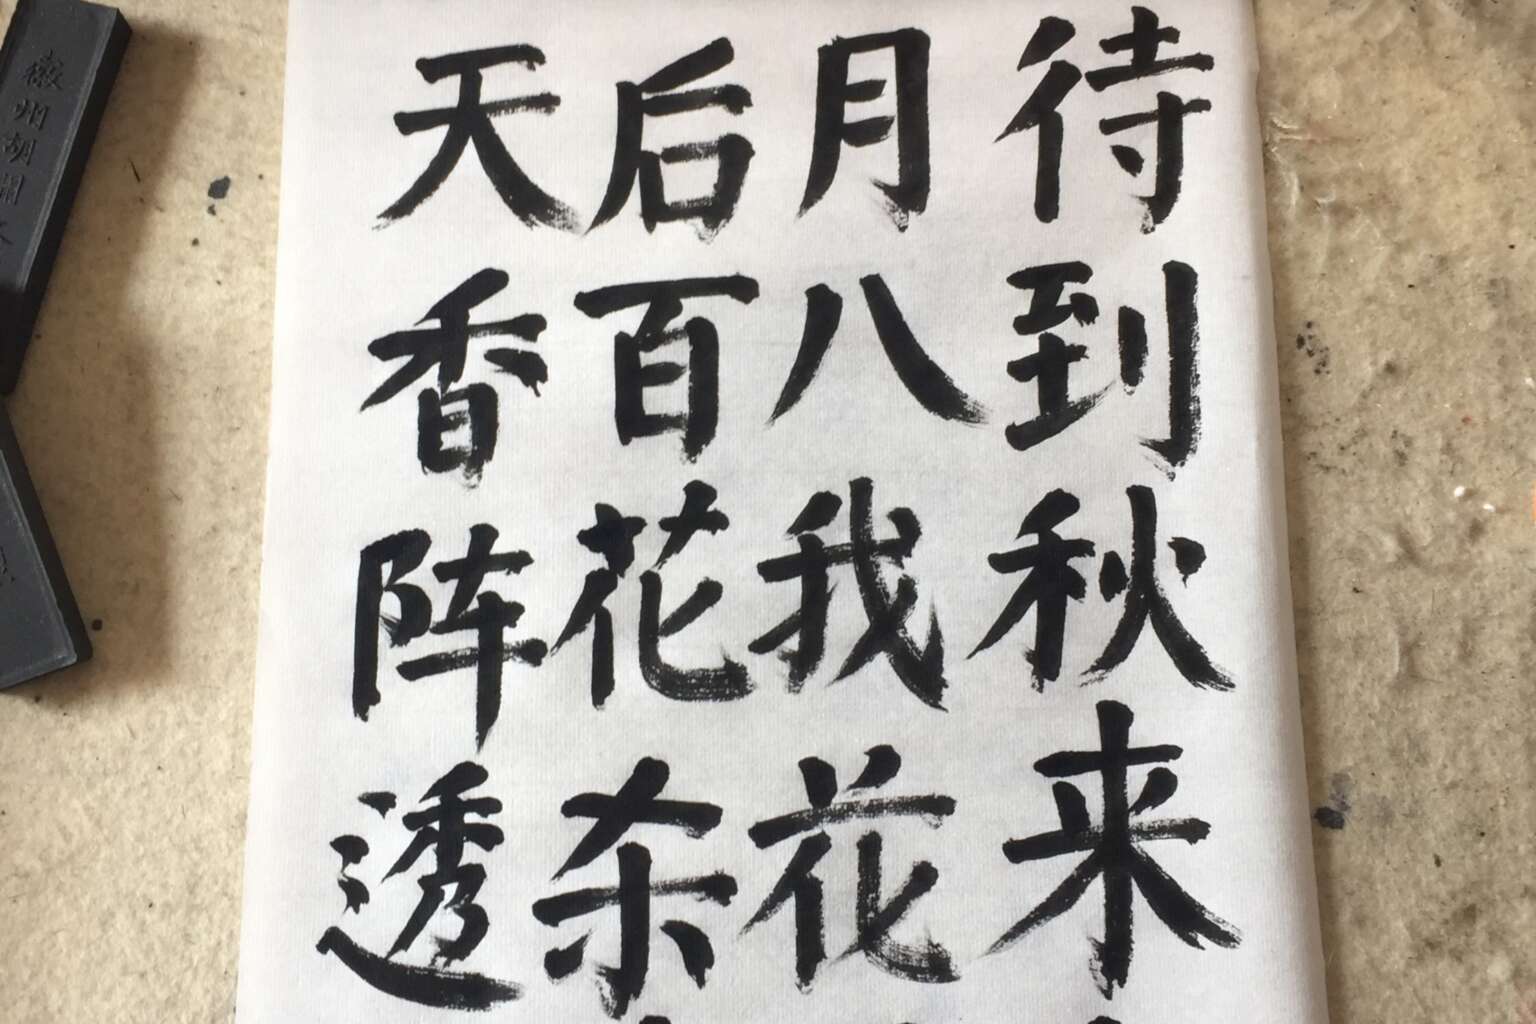 待到秋来
月八我花
后百花杀
天香阵透
徽州胡開